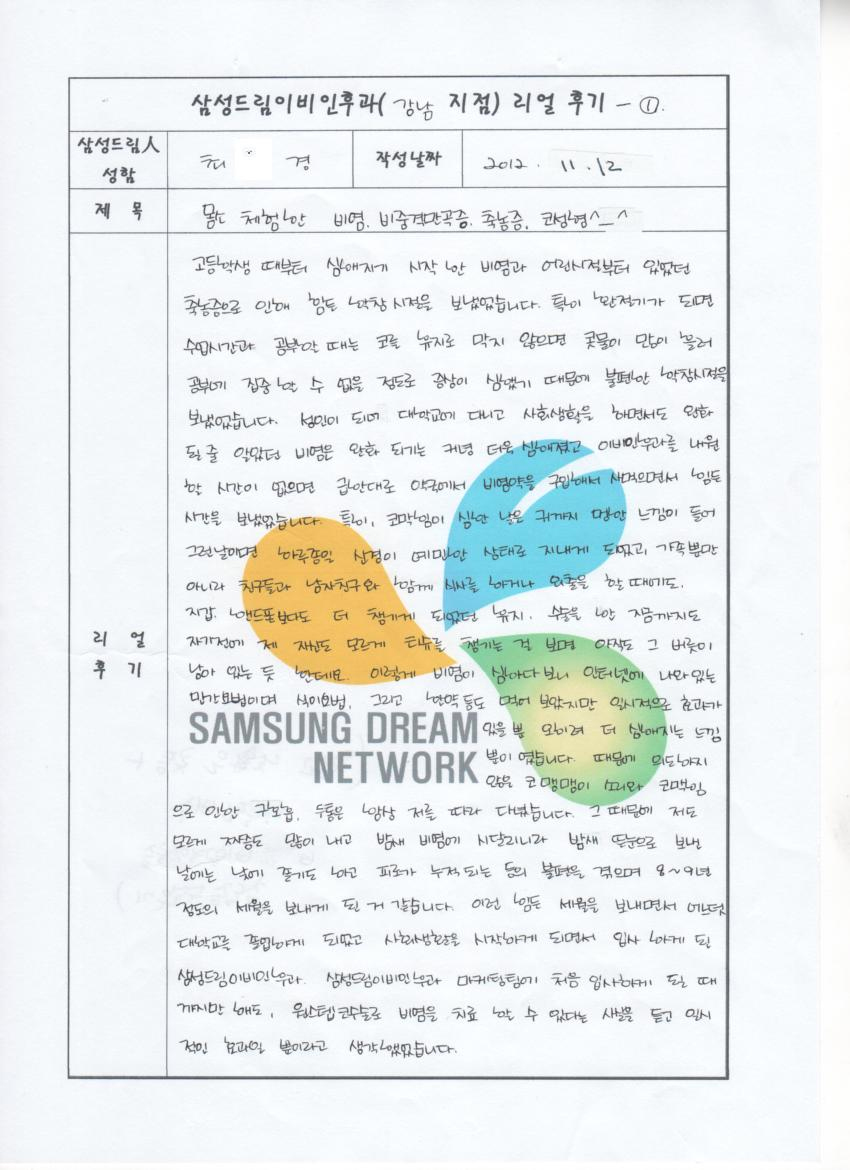 삼성드림이비인후과( 강남 지점) 리얼 후기 - ①.
삼성드림人 성함
최 경
작성날짜
2012. 11. 12
제 목
몸도 체험한 비염, 비중격만곡증, 축농증, 코성형^_^
리 얼 후 기
고등학생 때부터 심해지기 시작한 비염과 어린시절부터 있었던
축농증으로 인해 힘든 학창시절을 보냈었습니다. 특히 환절기가 되면
수업시간과 공부할 때는 코를 휴지로 막지 않으면 콧물이 많이 흘러
공부에 집중할 수 없을 정도로 증상이 심했기 때문에 불편한 학창시절을
보냈었습니다. 성인이 되어 대학교에 다니고 사회생활을 하면서도 완화
될 줄 알았던 비염은 완화 되기는 커녕 더욱 심해졌고 이비인후과를 내원
할 시간이 없으면 급한대로 약국에서 비염약을 구입해서 사먹으면서 힘든
시간을 보냈었습니다. 특히, 코막힘이 심한 날은 귀까지 멍한 느낌이 들어
그런날이면 하루종일 신경이 예민한 상태로 지내게 되었고, 가족뿐만
아니라 친구들과 남자친구와 함께 식사를 하거나 외출을 할 때에도,
지갑, 핸드폰보다도 더 챙기게 되었던 휴지. 수술을 한 지금까지도
자가전에 제 자신도 모르게 티슈를 챙기는 걸 보면 아직도 그 버릇이
남아 있는 듯 한데요. 이렇게 비염이 심하다보니 인터넷에 나와있는
민간요법이며 식이요법, 그리고 한약 등도 먹어 보았지만 일시적으로 효과가
있을 뿐 오히려 더 심해지는 느낌
뿐이었습니다. 때문에 의도하지
않은 코맹맹이 소리와 코막힘
으로 인한 구호흡, 두통은 항상 저를 따라 다녔습니다. 그 때문에 저도
모르게 짜증도 많이 내고 밤새 비염에 시달리니라 밤새 뜬눈으로 보낸
날에는 낮에 졸기도 하고 피로가 누적되는 등의 불편을 겪으며 8~9년
정도의 세월을 보내게 된 거 같습니다. 이런 힘든 세월을 보내면서 어느덧
대학교를 졸업하게 되었고 사회생활을 시작하게 되면서 입사 하게 된
삼성드림이비인후과. 삼성드림이비인후과 마케팅팀에 처음 입사하게 될 때
까지만 해도, 원스텝코수술로 비염을 치료 할 수 있다는 사실을 듣고 일시
적인 효과일 뿐이라고 생각했었습니다.
SAMSUNG DREAM
NETWORK